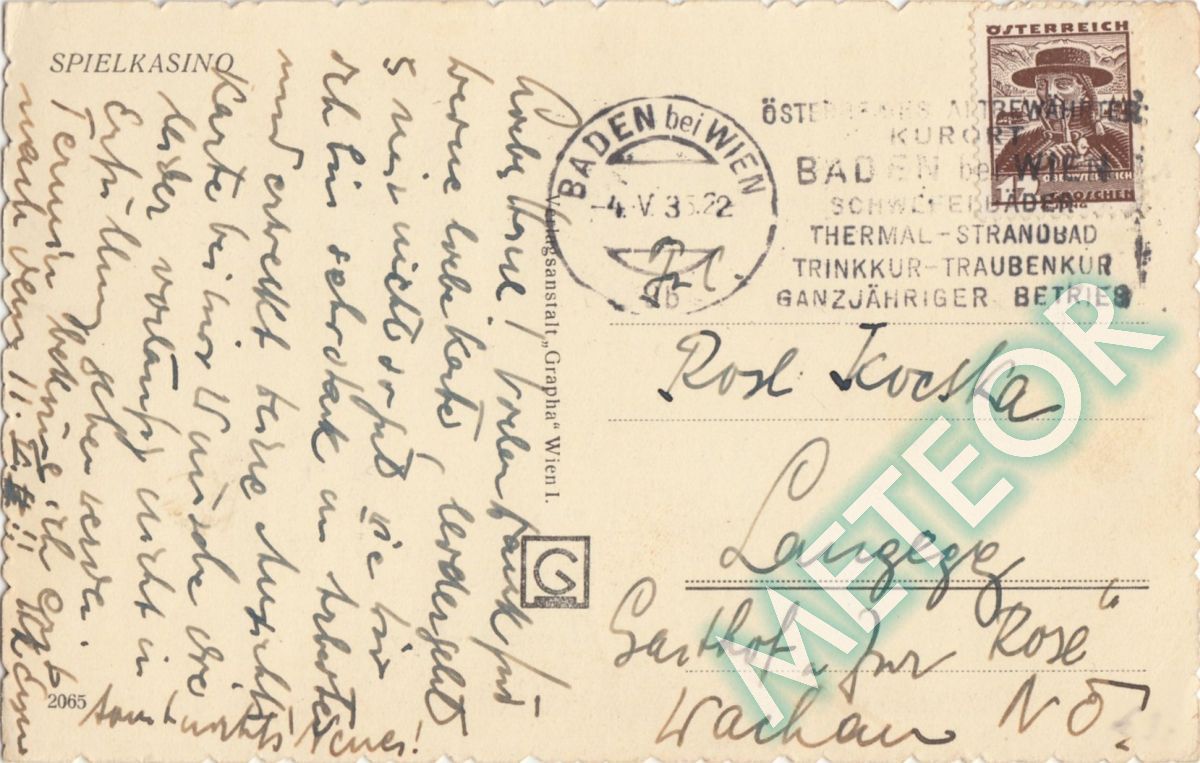 SPIELKASINO
Liebe Rosl! Vielen Dank für
deine liebe Karte, leider geht
s mir nicht so gut wie dir
ich bin sehr stark in Arbeit
und erweckt deine Ansichts
Karte bei mir Wünsche die
leider vorläufig nicht in
Erfüllung gehen werden.
Termin bekomme ich erst
nach dem 11. V.
sonst nichts Neues!
2065
Verlagsanstalt „Grapha" Wien I.
G
ÖSTERREICH
BADEN bei WIEN
-4.V.35.22
1b
ÖSTERREICHS ALTBEWÄHRTER
KURORT
BADEN bei WIEN
SCHWEFELBÄDER
THERMAL-STRANDBAD
TRINKKUR-TRAUBENKUR
GANZJÄHRIGER BETRIEB
Rosl Kocska
Langegg
Gasthof „zur Rose"
Wachau NÖ.
METEOR